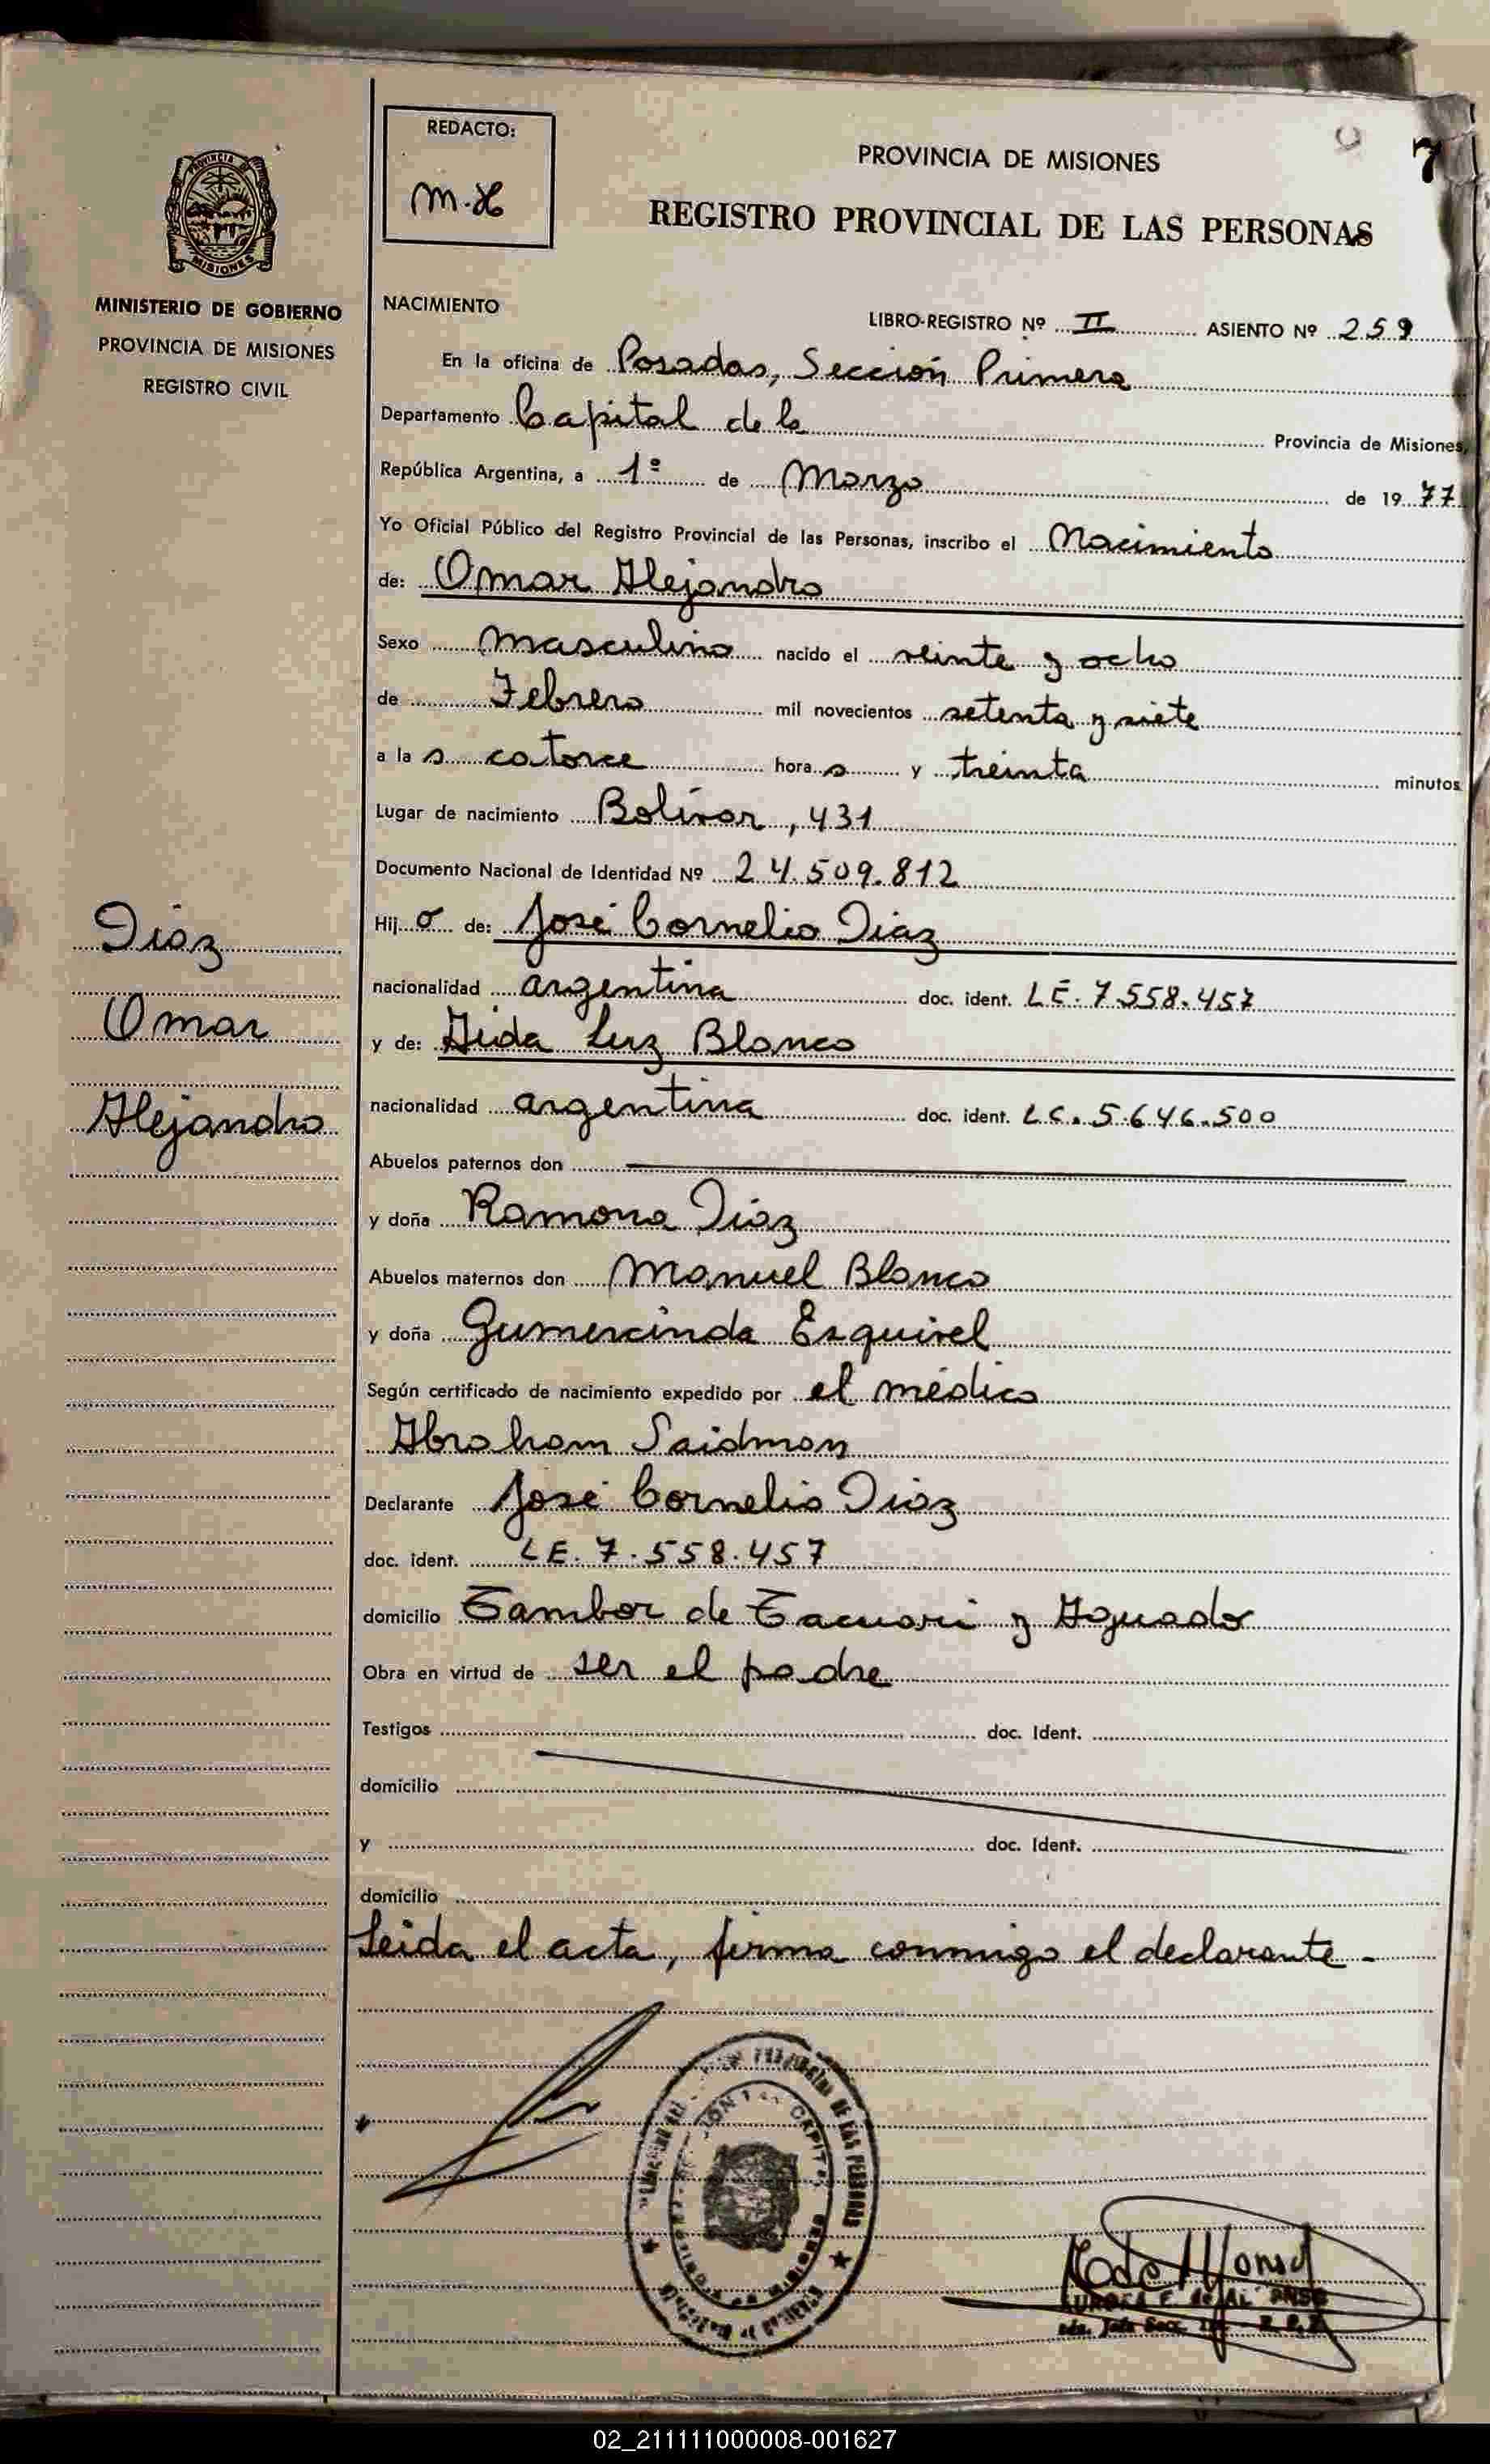 REDACTO:
m.H
PROVINCIA DE MISIONES
7
REGISTRO PROVINCIAL DE LAS PERSONAS
PROVINCIA DE
MISIONES
MINISTERIO DE GOBIERNO
PROVINCIA DE MISIONES
REGISTRO CIVIL
NACIMIENTO
LIBRO-REGISTRO Nº II ASIENTO Nº 259
En la oficina de Posadas, Sección Primera
Departamento Capital de la Provincia de Misiones,
República Argentina, a 1º de Marzo de 1977
Yo Oficial Público del Registro Provincial de las Personas, inscribo el Nacimiento
de: Omar Alejandro
Sexo masculino nacido el veinte y ocho
de Febrero mil novecientos setenta y siete
a la s catorce hora s y treinta minutos
Lugar de nacimiento Bolívar, 431
Documento Nacional de Identidad Nº 24.509.812
Hij o de: José Cornelio Díaz
nacionalidad argentina doc. ident. LE. 7.558.457
y de: Aida Luz Blanco
nacionalidad argentina doc. ident. LC. 5.646.500
Díaz
Omar
Alejandro
Abuelos paternos don
y doña Ramona Díaz
Abuelos maternos don Manuel Blanco
y doña Gumercinda Esquivel
Según certificado de nacimiento expedido por el médico
Abraham Saidman
Declarante José Cornelio Díaz
doc. ident. LE. 7.558.457
domicilio Tambor de Tacuarí y Aguado
Obra en virtud de ser el padre
Testigos doc. Ident.
domicilio
y doc. Ident.
domicilio
Leida el acta, firma conmigo el declarante.-
DE LAS PERSONAS
02_211111000008-001627